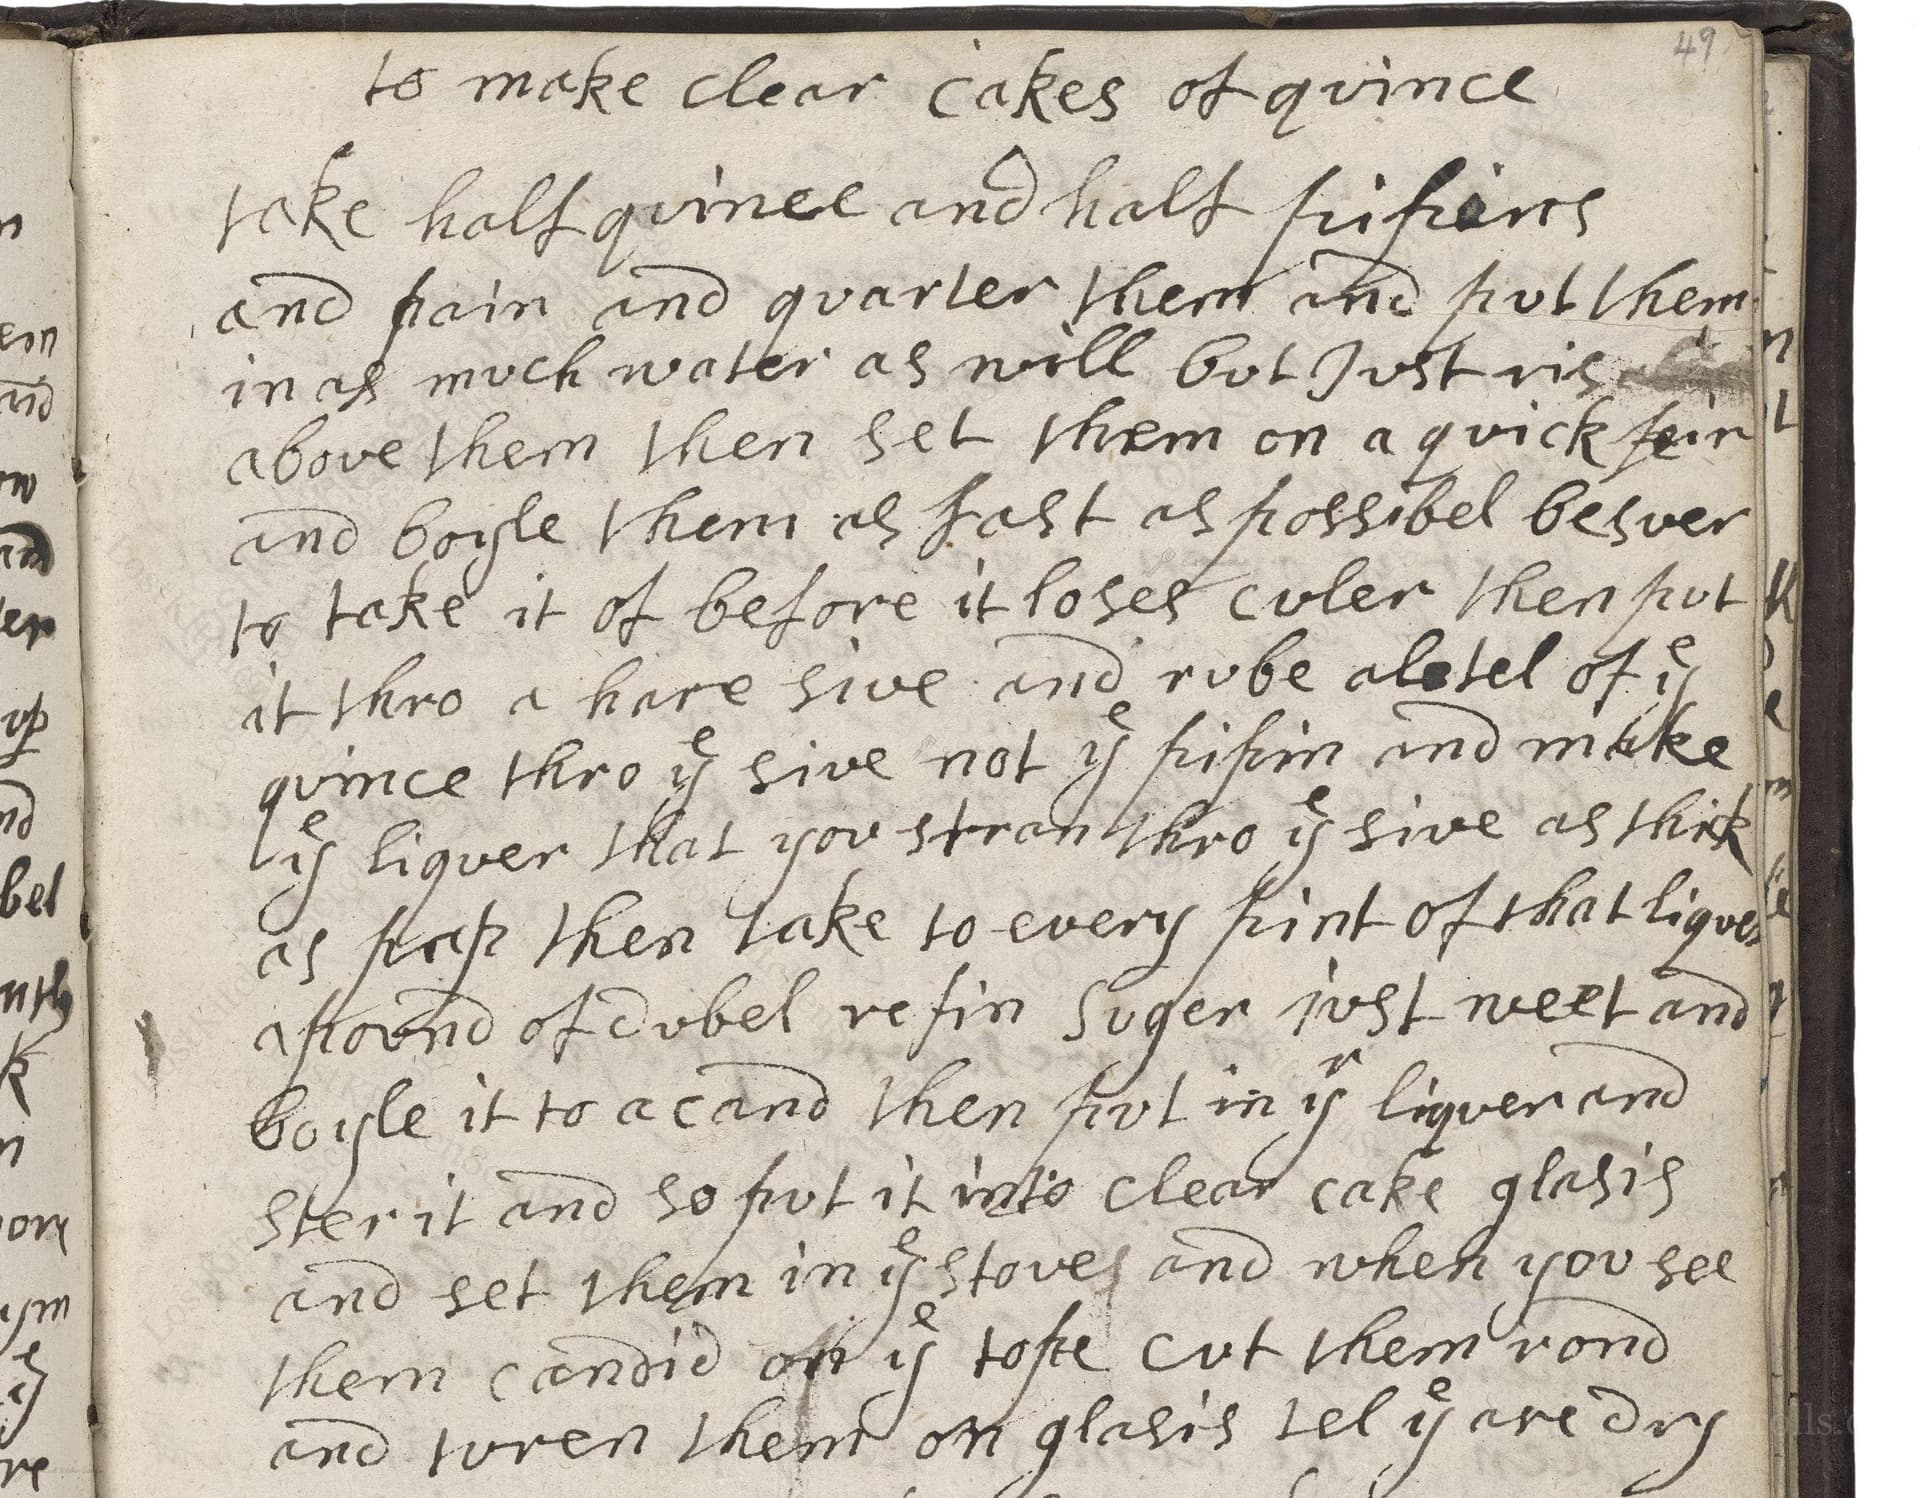 49
to make clear cakes of quince
take half quince and half pipins
and pain and quarter them and put them
in as much water as will but Just ris
above them then set them on a quick feir
and boyle them as fast as possibel besuer
to take it of before it loses culer then put
it thro a hare sive and rube aletel of yᵉ
quince thro yᵉ sive not yᵉ pipin and make
yᵉ liquer that you stran thro yᵉ sive as thick
as pap then take to every pint of that liquer
a pound of dubel refin Suger just weet and
boyle it to a cand then put in yʳ liquer and
ster it and so put it into clear cake glasis
and set them in yᵉ stove and when you see
them candid on yᵉ tope cut them rond
and turen them on glasis tel yᵉ are dry